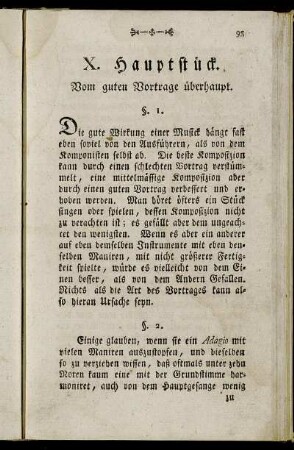 93
X. Hauptstück.
Vom guten Vortrage überhaupt.
§. 1.
Die gute Wirkung einer Musick hängt fast
eben soviel von den Ausführern, als von dem
Komponisten selbst ab. Die beste Komposizion
kann durch einen schlechten Vortrag verstüm-
melt, eine mittelmässige Komposizion aber
durch einen guten Vortrag verbessert und er-
hoben werden. Man höret öfters ein Stück
singen oder spielen, dessen Komposizion nicht
zu verachten ist; es gefällt aber dem ungeach-
tet den wenigsten. Wenn es aber ein anderer
auf eben demselben Instrumente mit eben den-
selben Maniren, mit nicht größerer Fertig-
keit spielte, würde es vielleicht von dem Ei-
nen besser, als von dem Andern Gefallen.
Nichts als die Art des Vortrages kann al-
so hieran Ursache seyn.
§. 2.
Einige glauben, wenn sie ein Adagio mit
vielen Maniren auszustopfen, und dieselben
so zu verziehen wissen, daß oftmals unter zehn
Noten kaum eine mit der Grundstimme har-
moniret, auch von dem Hauptgesange wenig
zu